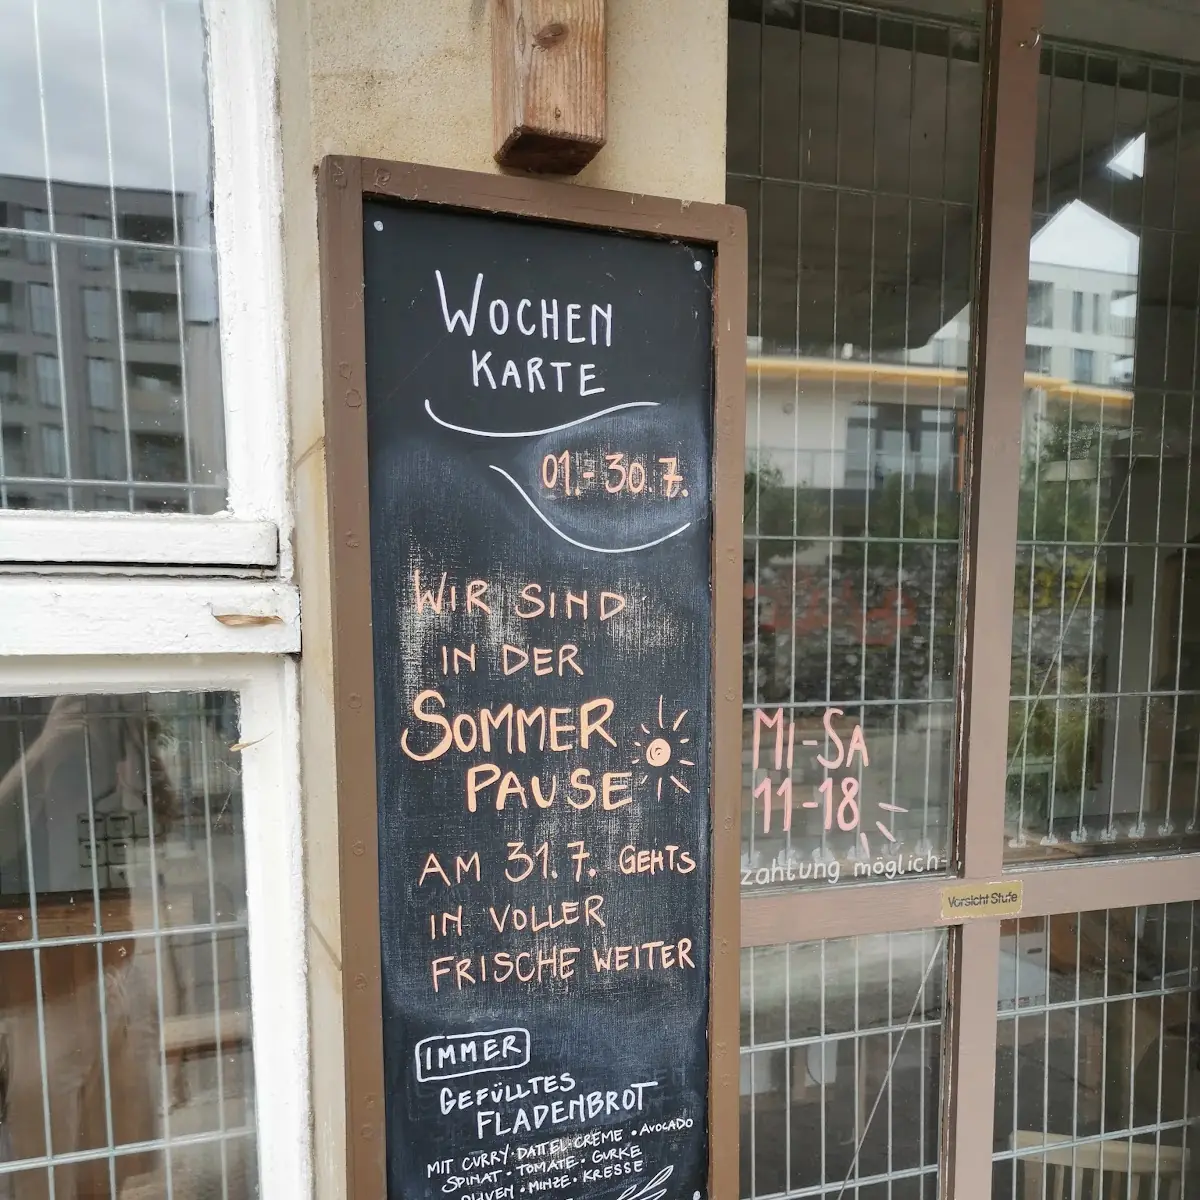 WOCHEN
KARTE
01.- 30.7.
WIR SIND
IN DER
SOMMER
PAUSE
AM 31.7. GEHTS
IN VOLLER
FRISCHE WEITER
IMMER
GEFÜLLTES
FLADENBROT
MIT CURRY-DATTEL-CREME • AVOCADO
SPINAT • TOMATE • GURKE
OLIVEN • MINZE • KRESSE
MI-SA
11-18
zahlung möglich-
Vorsicht Stufe